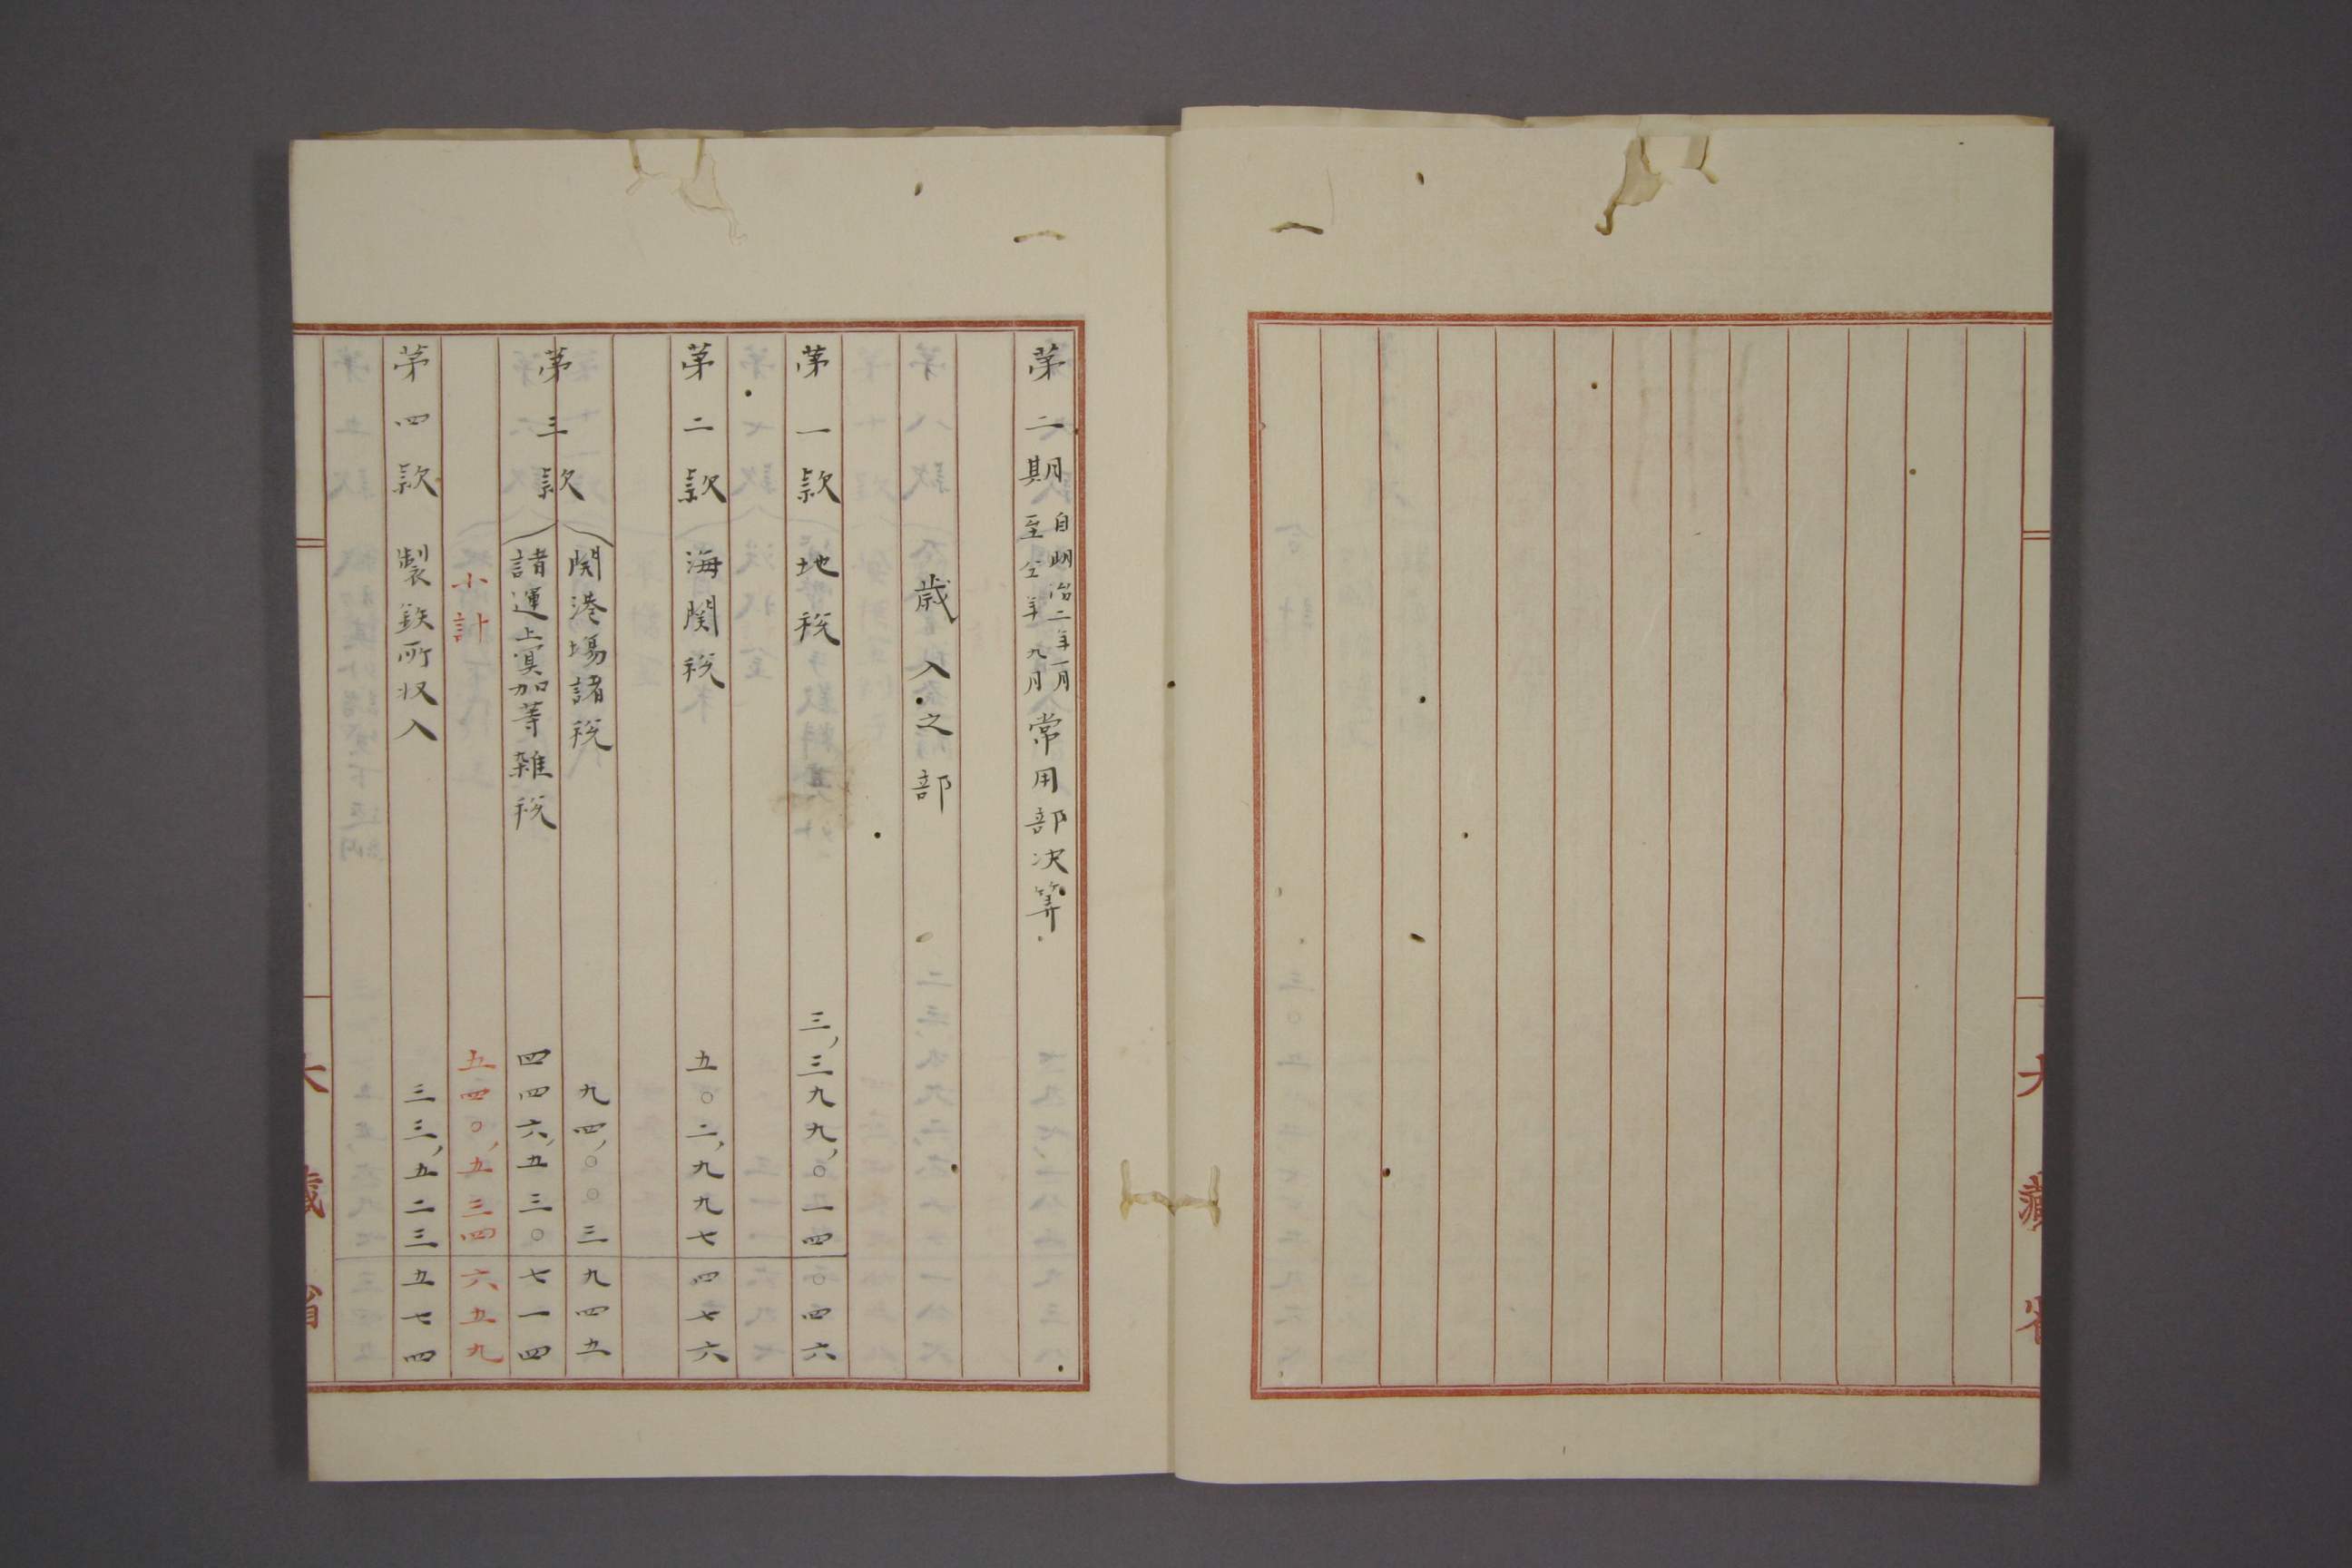 大藏省
第二期 自明治二年一月 至仝年九月 常用部决算
歳入之部
第一款 地税 三,三九九,〇一四 〇四六
第二款 海関税 五〇二,九九七 四七六
第三款 関港場諸税 九四,〇〇三 九四五
諸運上冥加等雑税 四四六,五三〇 七一四
小計 五四〇,五三四 六五九
第四款 製鉄所収入 三三,五二三 五七四
大藏省